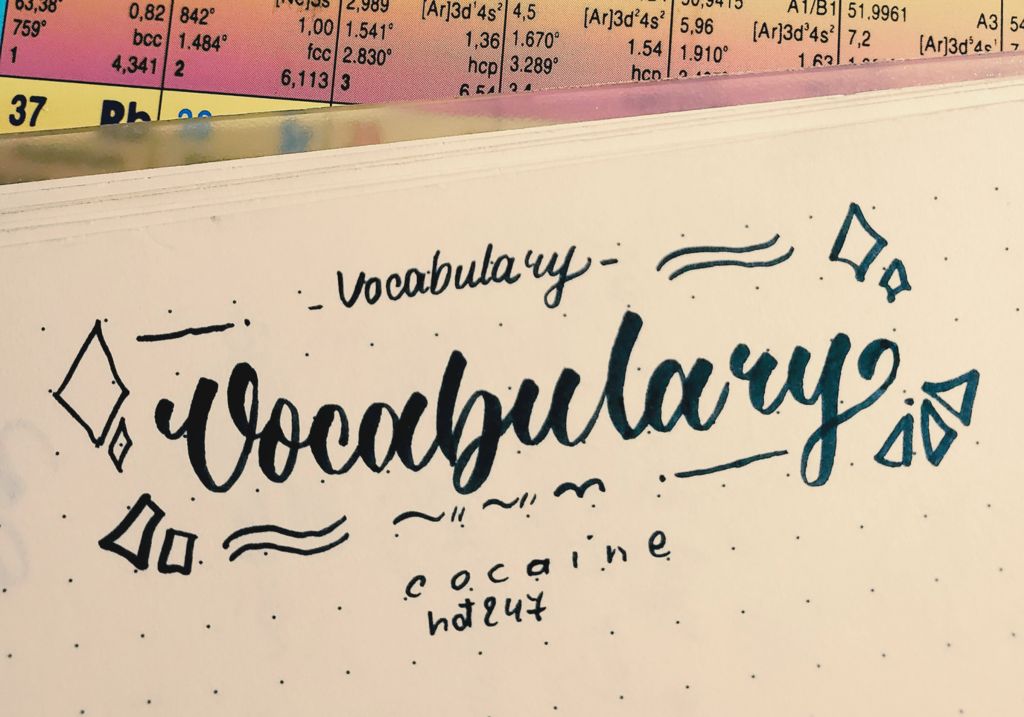 63,38° 0,82 842° [Ne]3s 2,989 [Ar]3d¹4s² 4,5 [Ar]3d²4s² 50,9415 A1/B1 51.9961 A3
759° bcc 1.484° 1,00 1.541° 1,36 1.670° 1.54 5,96 [Ar]3d³4s² 7,2 [Ar]3d⁵4s¹
1 4,341 2 fcc 2.830° hcp 3.289° hcp 1.910° 1 63
6,113 3 6,54 3,4
37 Rb 38
- Vocabulary -
Vocabulary
cocaine
hot247